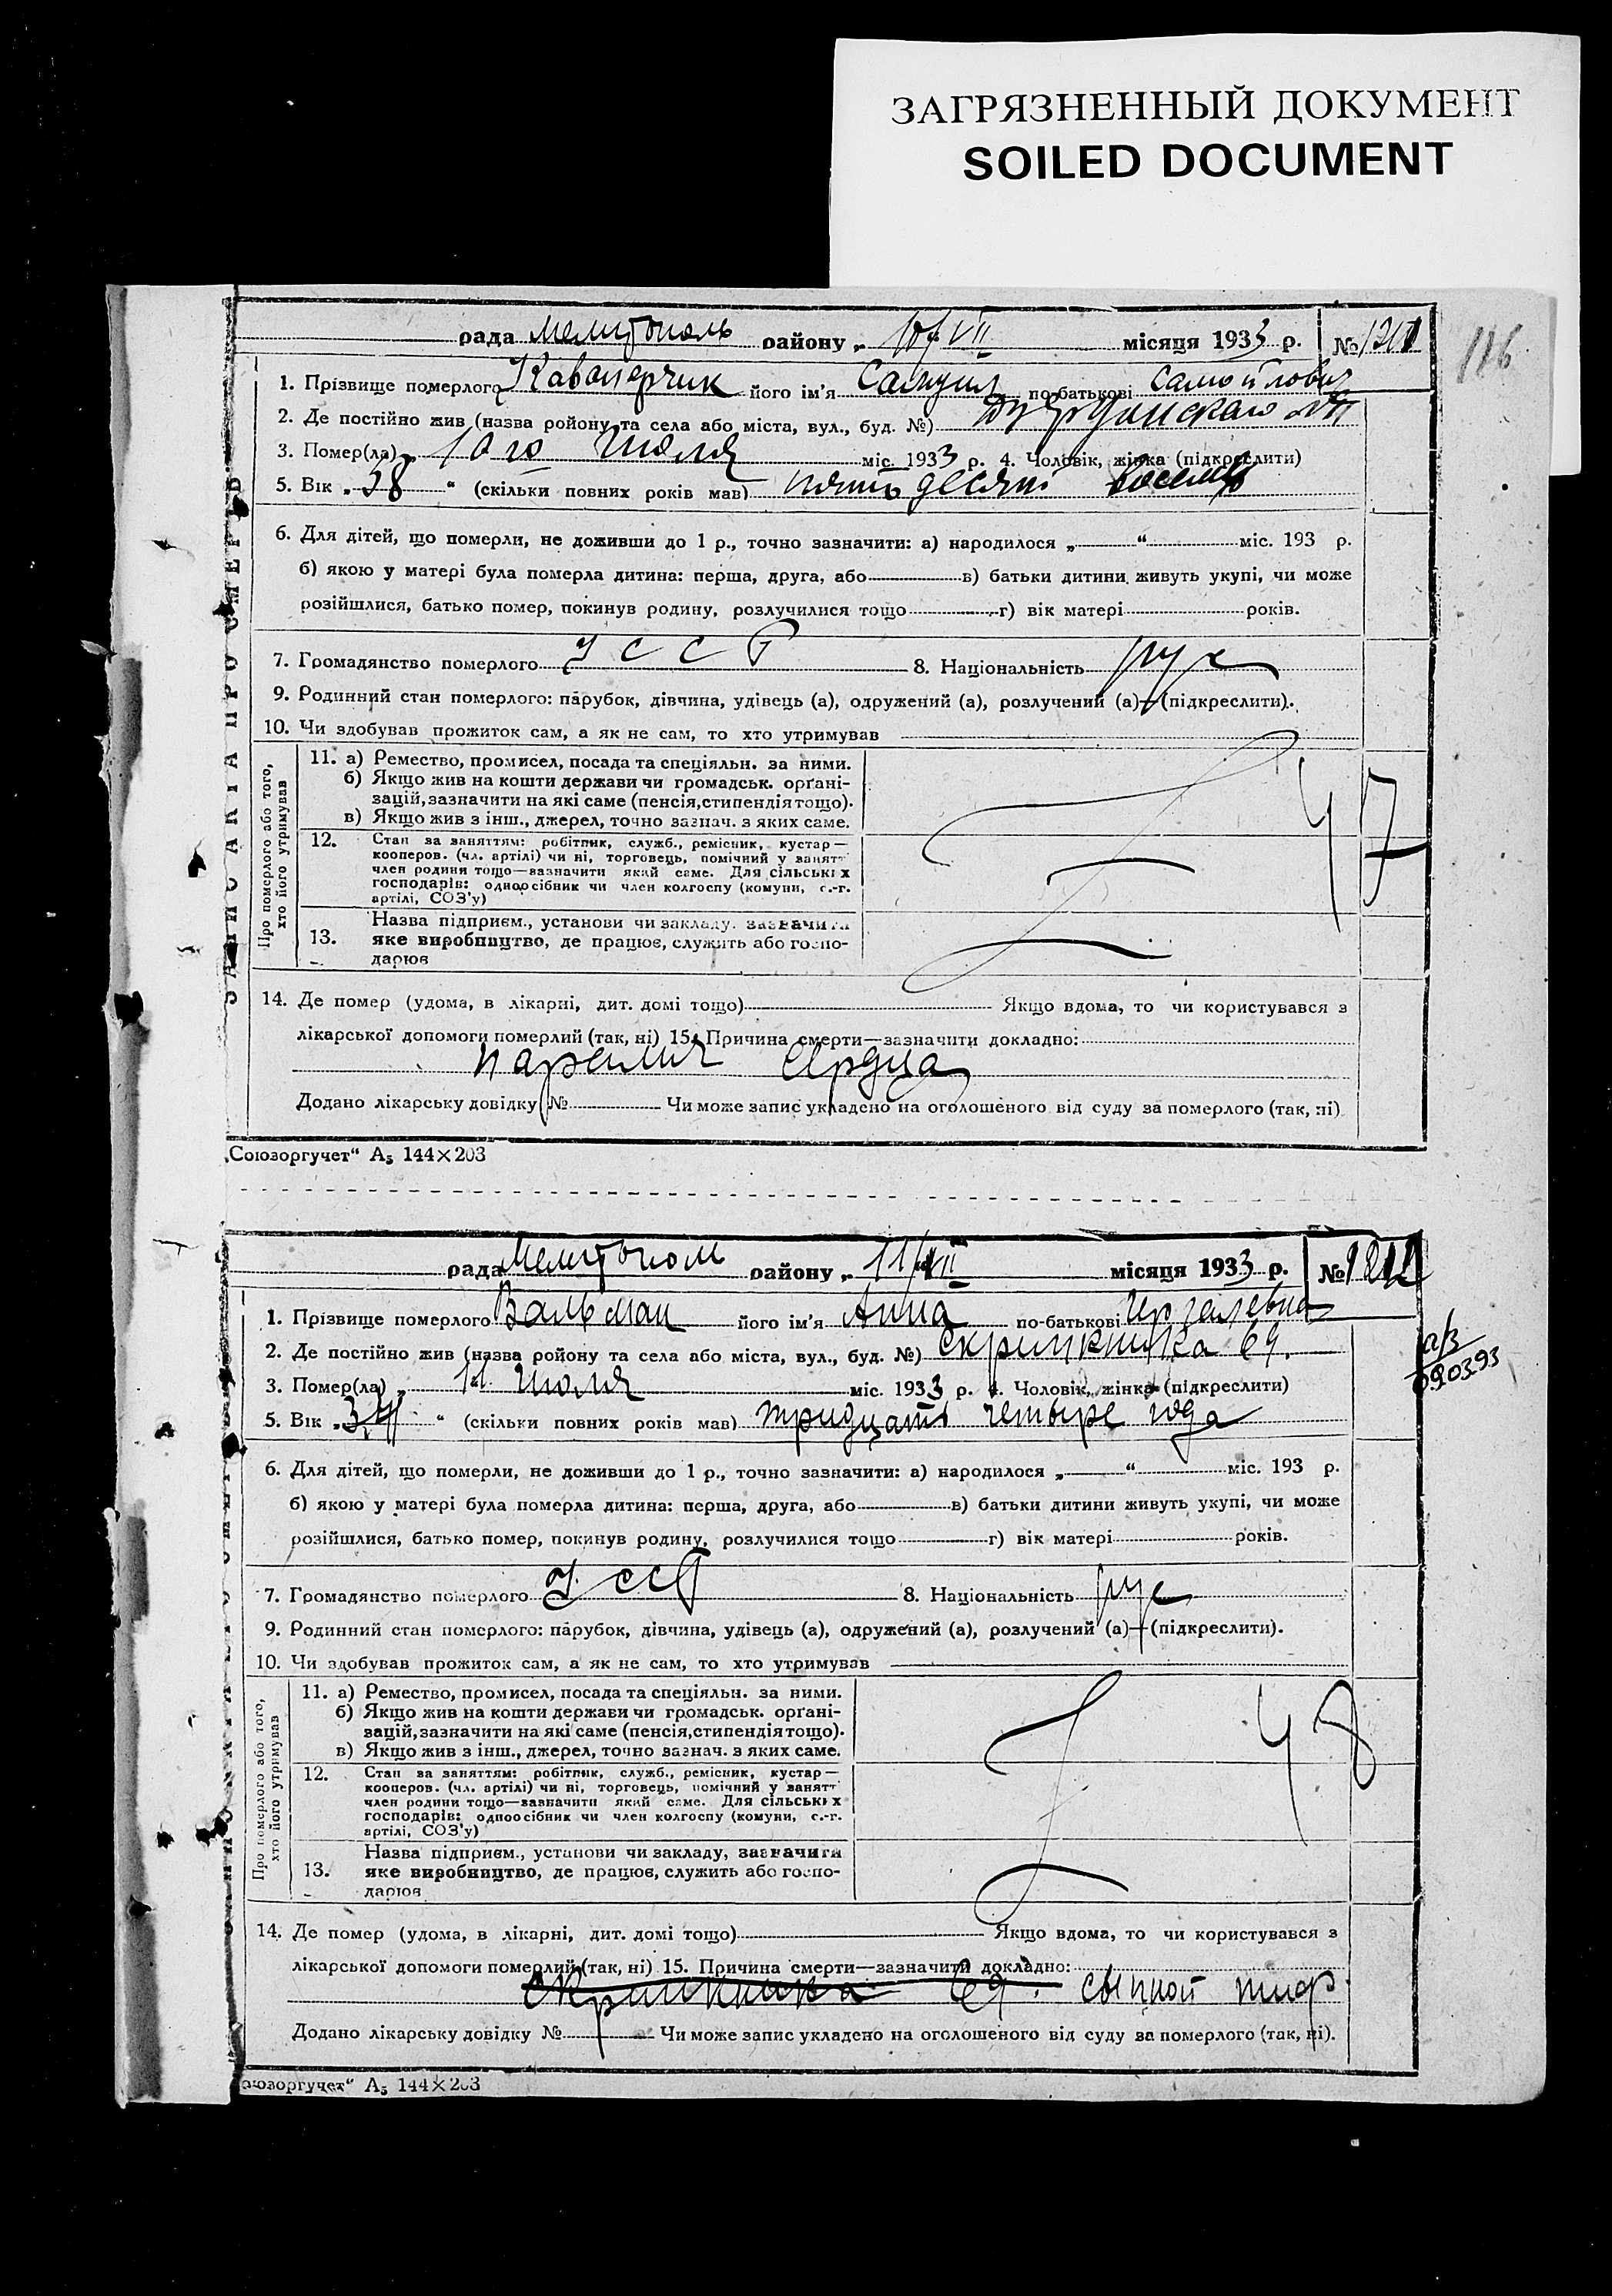 ЗАГРЯЗНЕННЫЙ ДОКУМЕНТ
SOILED DOCUMENT
116
рада Мелитополь району „ 10/VII місяця 1933 р. №
ЗАПИС АКТА ПРО СМЕРТЬ
1. Прізвище померлого Кавалерчик його ім'я Самуил по-батькові Самойлович
2. Де постійно жив (назва ройону та села або міста, вул., буд. №)
3. Помер(ла) „ 10го Июля міс. 1933 р. 4. Чоловік, жінка (підкреслити)
5. Вік „58 “ (скільки повних років мав) пятьдесят восемь
6. Для дітей, що померли, не доживши до 1 р., точно зазначити: а) народилося „ “ міс. 193 р.
б) якою у матері була померла дитина: перша, друга, або в) батьки дитини живуть укупі, чи може
розійшлися, батько помер, покинув родину, розлучилися тощо г) вік матері років.
7. Громадянство померлого УССР 8. Національність рус
9. Родинний стан померлого: парубок, дівчина, удівець (а), одружений (а), розлучений (а)—(підкреслити).
10. Чи здобував прожиток сам, а як не сам, то хто утримував
Про померлого або того, хто його утримував
11. а) Ремество, промисел, посада та спеціяльн. за ними.
б) Якщо жив на кошти держави чи громадськ. орґані-
зацій, зазначити на які саме (пенсія, стипендія тощо).
в) Якщо жив з інш., джерел, точно зазнач. з яких саме.
47
12. Стан за заняттям: робітник, служб., ремісник, кустар—
кооперов. (чл. артілі) чи ні, торговець, помічний у занятт
член родини тощо—зазначити який саме. Для сільських
господарів: одноосібник чи член колгоспу (комуни, с.-г.
артілі, СОЗ'у)
13. Назва підприєм., установи чи закладу, зазначити
яке виробництво, де працює, служить або госпо-
дарює
14. Де помер (удома, в лікарні, дит. домі тощо) Якщо вдома, то чи користувався з
лікарської допомоги померлий (так, ні) 15. Причина смерти—зазначити докладно:
паралич сердца
Додано лікарську довідку № Чи може запис укладено на оголошеного від суду за померлого (так, ні)
„Союзоргучет“ А₅ 144×203
рада Мелитополь району „ 11/VII місяця 1933 р. № 1212
1. Прізвище померлого Вальман його ім'я Анна по-батькові
2. Де постійно жив (назва ройону та села або міста, вул., буд. №) Скрипника 69.
3. Помер(ла) „ 11 Июля міс. 1933 р. 4. Чоловік, жінка (підкреслити)
5. Вік „34 “ (скільки повних років мав) тридцать четыре года
а/з
09.03.93
6. Для дітей, що померли, не доживши до 1 р., точно зазначити: а) народилося „ “ міс. 193 р.
б) якою у матері була померла дитина: перша, друга, або в) батьки дитини живуть укупі, чи може
розійшлися, батько помер, покинув родину, розлучилися тощо г) вік матері років.
7. Громадянство померлого УССР 8. Національність рус
9. Родинний стан померлого: парубок, дівчина, удівець (а), одружений (а), розлучений (а)—(підкреслити).
10. Чи здобував прожиток сам, а як не сам, то хто утримував
Про померлого або того, хто його утримував
11. а) Ремество, промисел, посада та спеціяльн. за ними.
б) Якщо жив на кошти держави чи громадськ. орґані-
зацій, зазначити на які саме (пенсія, стипендія тощо).
в) Якщо жив з інш., джерел, точно зазнач. з яких саме.
48
12. Стан за заняттям: робітник, служб., ремісник, кустар—
кооперов. (чл. артілі) чи ні, торговець, помічний у занятт
член родини тощо—зазначити який саме. Для сільських
господарів: одноосібник чи член колгоспу (комуни, с.-г.
артілі, СОЗ'у)
13. Назва підприєм., установи чи закладу, зазначити
яке виробництво, де працює, служить або госпо-
дарює
14. Де помер (удома, в лікарні, дит. домі тощо) Якщо вдома, то чи користувався з
лікарської допомоги померлий (так, ні) 15. Причина смерти—зазначити докладно:
Скрипника 69. сыпной тиф.
Додано лікарську довідку № Чи може запис укладено на оголошеного від суду за померлого (так, ні).
оюзоргучет“ А₅ 144×203